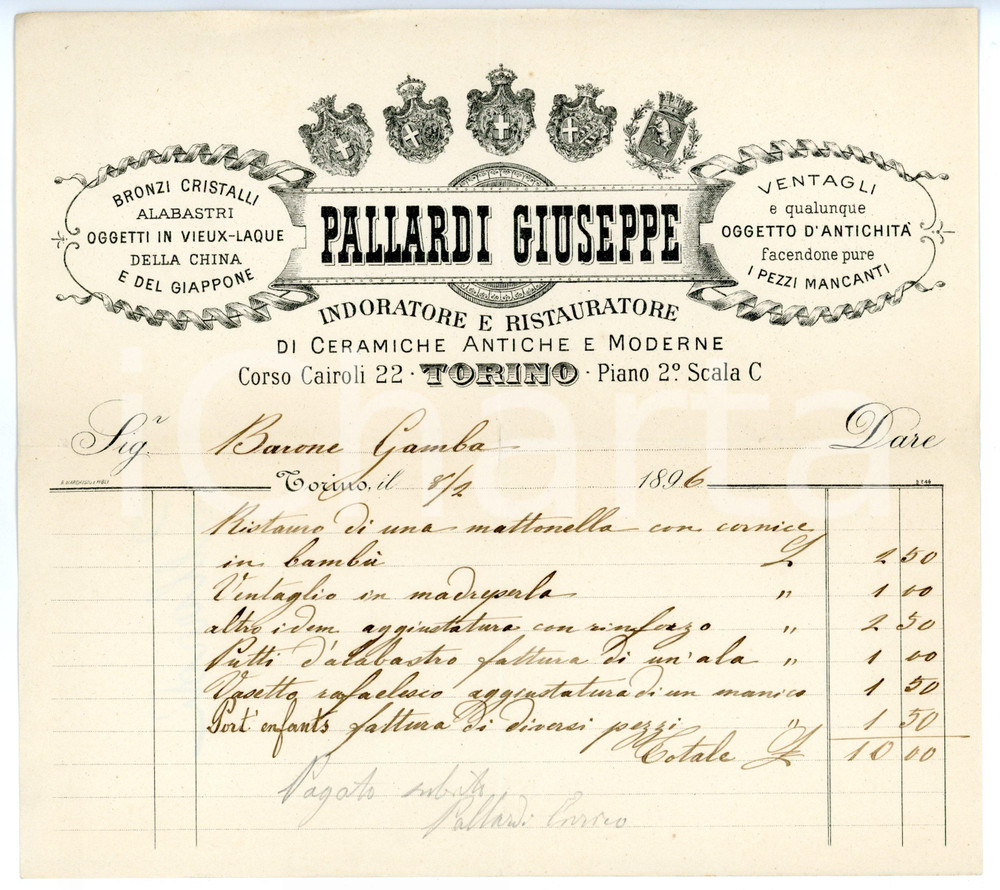 BRONZI CRISTALLI
ALABASTRI
OGGETTI IN VIEUX-LAQUE
DELLA CHINA
E DEL GIAPPONE
PALLARDI GIUSEPPE
VENTAGLI
e qualunque
OGGETTO D'ANTICHITÀ
facendone pure
I PEZZI MANCANTI
INDORATORE E RISTAURATORE
DI CERAMICHE ANTICHE E MODERNE
Corso Cairoli 22 · TORINO · Piano 2º Scala C
Sigr Barone Gamba Dare
Torino, il 8/2 1896
Ristauro di una mattonella con cornice
in bambù £ 2 50
Ventaglio in madreperla " 1 00
altro idem aggiustatura con rinforzo " 2 50
Putti d'alabastro fattura di un'ala " 1 00
Vasetto rafaelesco aggiustatura di un manico 1 50
Port' enfants fattura di diversi pezzi " 1 50
Totale £ 10 00
Pagato
Pallardi Enrico
iCharta